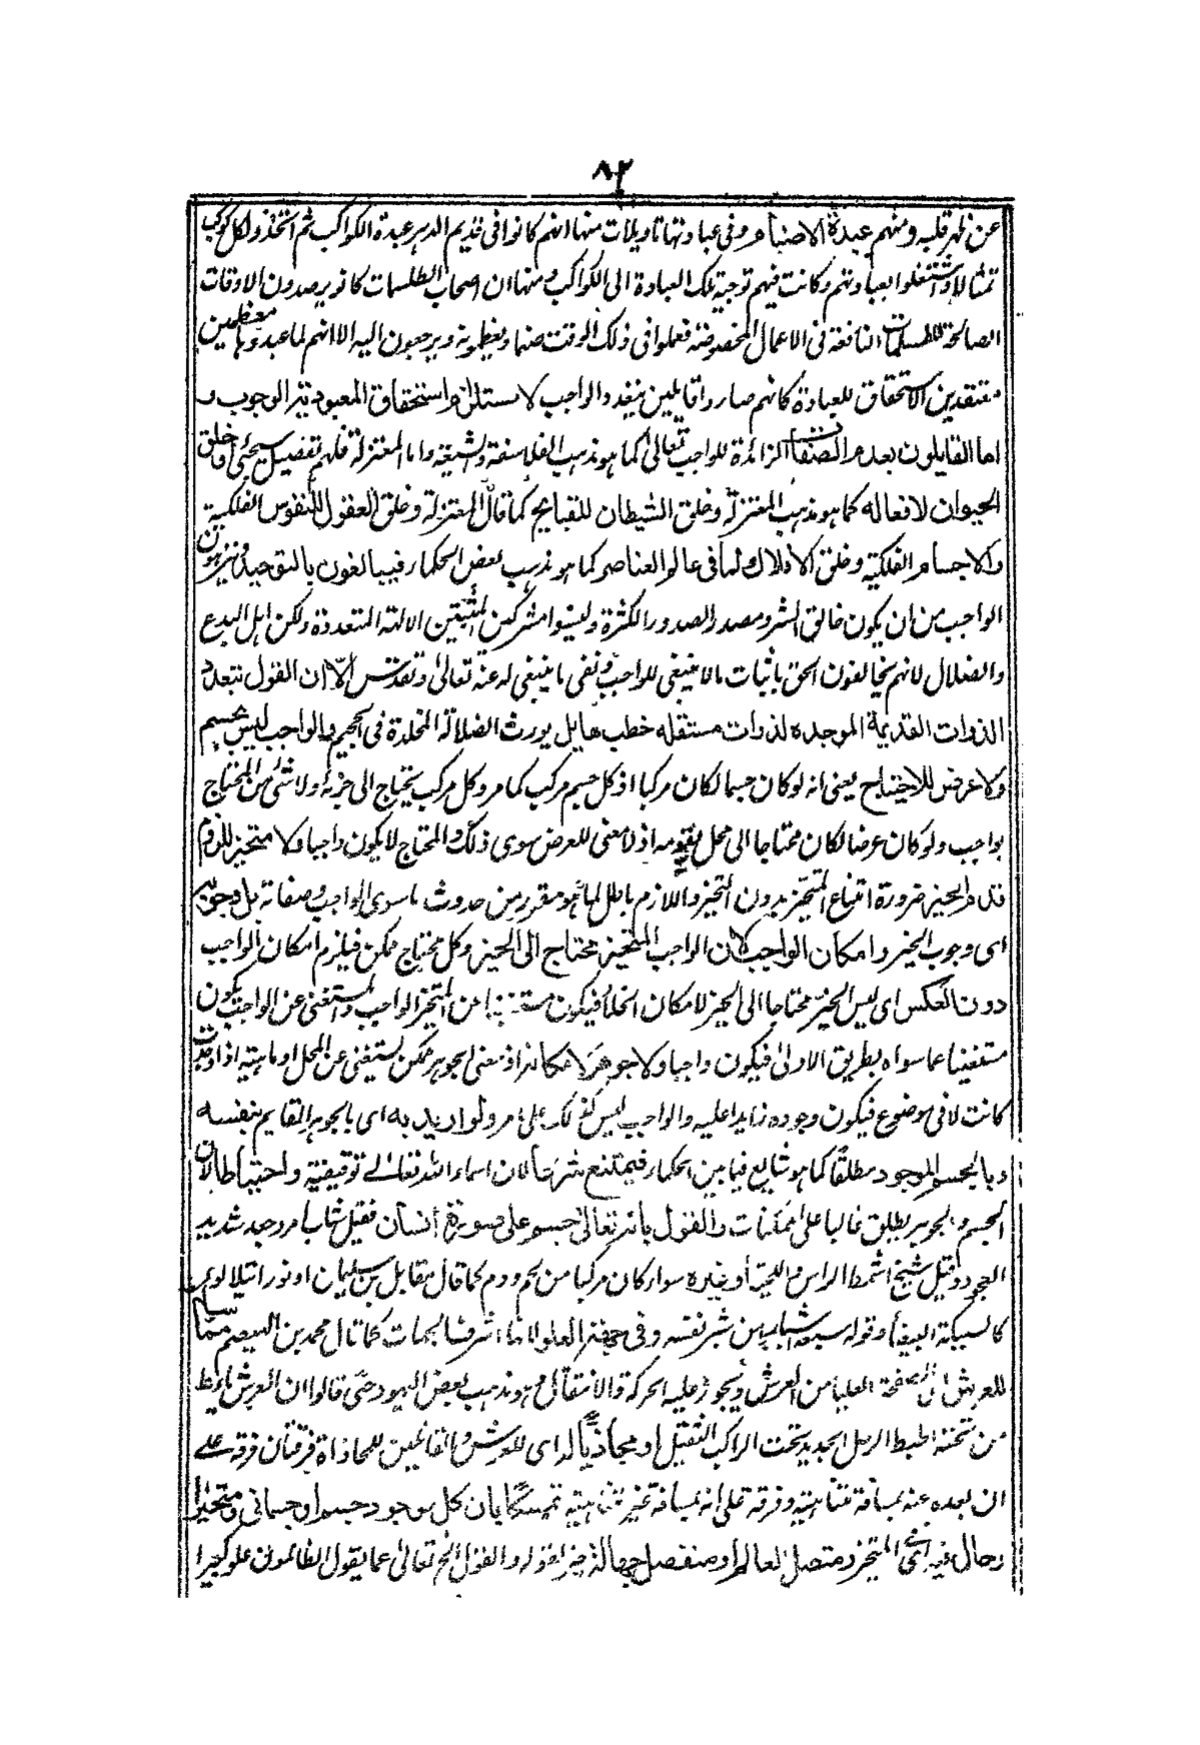 ٨٢
عن ظهر قلبه ومنهم عبدة الاصنام وفى عبادتها تاويلات منها انهم كانوا فى قديم الدهر عبدة الكواكب ثم اتخذوا لكل كوكب
تمثالا واشتغلوا بعبادتهم وكانت فيهم توجيه تلك العبادة الى الكواكب ومنها ان اصحاب الطلسمات كانو يرصدون الاوقات
الصالحة للطلسمات النافعة فى الاعمال المخصوصة فعملوا فى ذلك الوقت صنما ويعظمونه ويرجعون اليه الا انهم لما عبدوها معظمين
معتقدين الاستحقاق للعبادة كانهم صاروا قايلين بتعدد الواجب لاستلزام استحقاق المعبودية الوجوب و
اما القايلون بعدم الصفات الزائدة للواجب تعالى كما هو مذهب الفلاسفة والشيعة واما المعتزلة فلهم تفصيل سيجئ او خلق
الحيوان لافعاله كما هو مذهب المعتزلة وخلق الشيطان للقبايح كما قال المعتزلة وخلق العقول للنفوس الفلكية
والاجسام الفلكية وخلق الافلاك لما فى عالم العناصر كما هو مذهب بعض الحكماء فيبالغون بالتوحيد وينزهون
الواجب من ان يكون خالق الشر ومصدر الصدور الكثرة وليسوا مشركين المثبتين الالهة المتعددة ولكن اهل البدع
والضلال لانهم يخالفون الحق باثبات ما لا ينبغى للواجب ونفى ما ينبغى له عنه تعالى وتقدس الا ان القول بتعدد
الذوات القديمة الموجدة لذوات مستقله خطب هايل يورث الضلالة المخلدة فى الجحيم والواجب ليس بجسم
ولا عرض للاحتياج يعنى انه لو كان جسما لكان مركبا اذ كل جسم مركب كما مر وكل مركب يحتاج الى جزئه ولا شئ من المحتاج
بواجب ولو كان عرضا لكان محتاجا الى محل يقومه اذ لا معنى للعرض سوى ذلك والمحتاج لا يكون واجبا ولا متحيز للزوم
قدم الحيز ضرورة امتناع المتحيز بدون التحيز واللازم باطل لما هو مقرر من حدوث ما سوى الواجب وصفاته بل وجوبه
اى وجوب الحيز وامكان الواجب لان الواجب المتحيز محتاج الى الحيز وكل محتاج ممكن فيلزم امكان الواجب
دون العكس اى ليس الحيز محتاجا الى الحيز لامكان الخلا فيكون مستغنيا عن المتحيز الواجب والمستغنى عن الواجب يكون
مستغنيا عما سواه بطريق الاولى فيكون واجبا ولا جوهر لامكانه اذ معنى الجوهر ممكن يستغنى عن المحل او ماهية اذا وجدت
كانت لا فى موضوع فيكون وجوده زايدا عليه والواجب ليس كذلك على ما مر ولو اريد به اى بالجوهر القايم بنفسه
وبالجسم الموجود مطلقا كما هو شايع فيما بين الحكماء فيمتنع شرعا لان اسماء الله تعالى توقيفية واحتياطا لان
الجسم والجوهر يطلق غالبا على الممكنات والقول بانه تعالى جسم على صورة انسان فقيل شاب امرد جعد شديد
الجعودة وقيل شيخ اشمط الراس واللحية او غيره سواء كان مركبا من لحم ودم كما قال مقاتل بن سليمان او نور ايتلالوى
كالسبيكة البيضاء وقوله سبعة اشبار من شبر نفسه وفى جهة العلو لانها اشرف الجهات كما قال محمد بن الهيصم مماسا
للعرش اى للصفحة العليا من العرش ويجوز عليه الحركة والانتقال هو مذهب بعض اليهود حتى قالوا ان العرش ياطط
من تحته اطيط الرحل الجديد تحت الراكب الثقيل او محاذيا له اى للعرش والقائلين للمحاذاة فرقتان فرقة على
ان بعده عنه بمسافة متناهية وفرقة على انه بمسافة غير متناهية تمسكا بان كل موجود جسم او جسمانى ومتحيزا
وحال فيه اى المتحيز ومتصل العالم او منفصل جهالة خبر لقوله والقول الخ تعالى عما يقول الظالمون علوا كبيرا